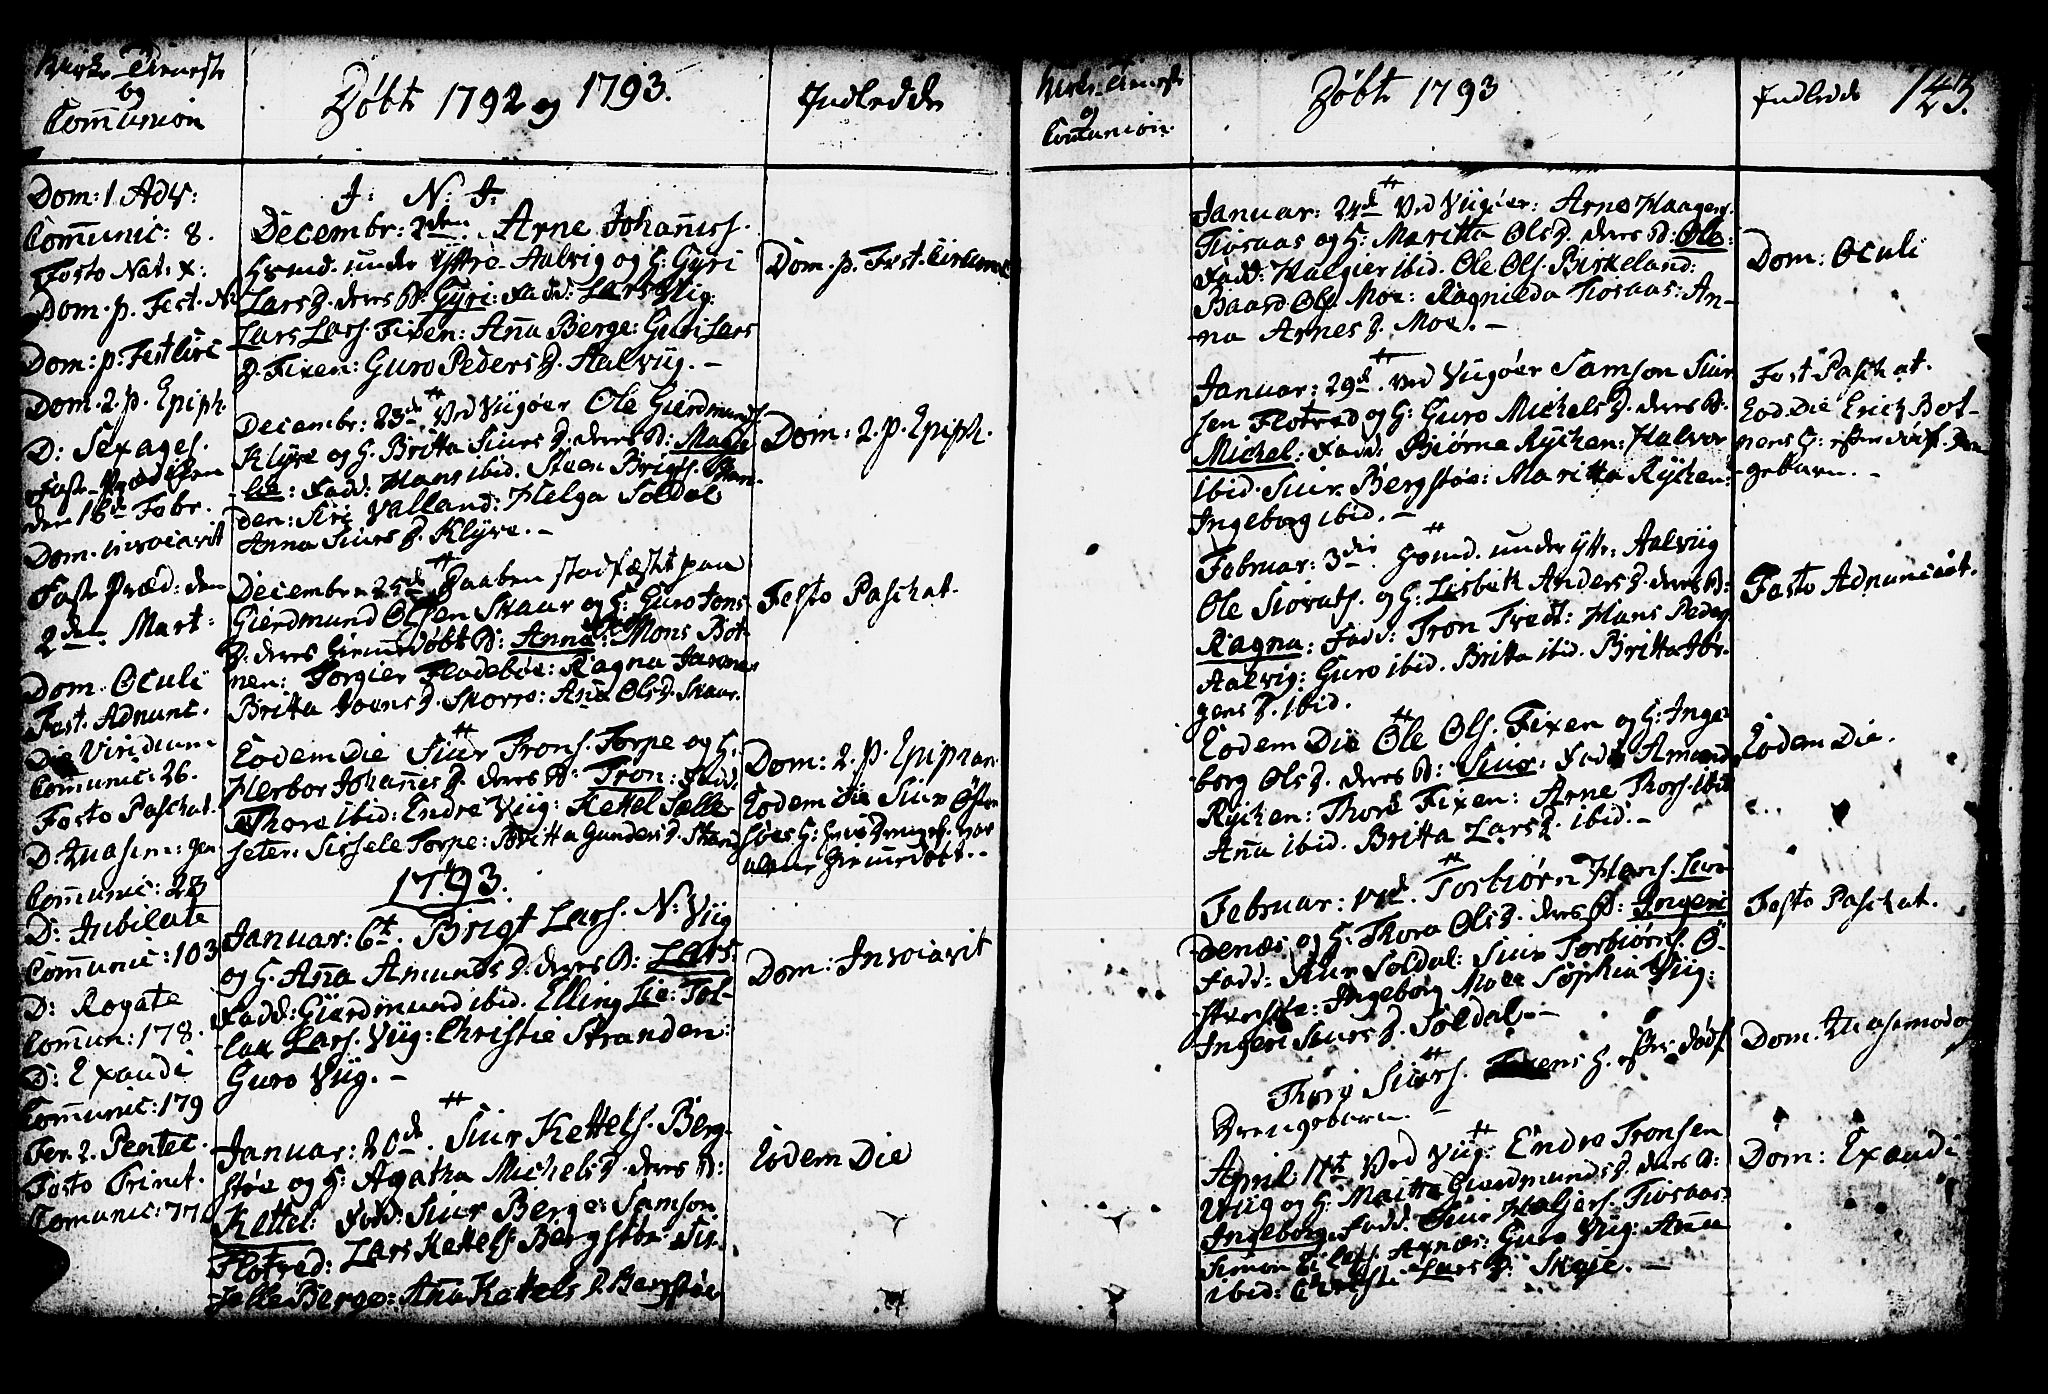 Kirke-Tieneste
og
Com̄union
Døbte 1792 og 1793.
Indledde
Dom: 1 Adv:
Com̄unic: 8.
Festo Nat: X:
Dom. p. Fest. N:
Dom: p. Fest Circ
Dom. 2. p. Epiph.
D: Sexages.
Faste-Prædiken
den 16de Febr.
Dom. invocavit
Faste Præd: den
2den Mart:
Dom. Oculi
Fest. Adnunc.
Die Viridium
Comunic: 26.
Festo Paschat.
D: Quasim: gen
Com̄unic: 28
D: Jubilate
Com̄unic: 103
D: Rogate
Com̄un: 178.
D: Exaudi
Com̄unic: 179
Fer. 2. Pentec.
Festo Trinit.
Comunic: 77
J: N: J:
Decembr: 2den. Arne Johan̄iss.
Huusmd. under Yttre Aalvig og H: Gyri
Lars D. deres B: Gyri: Fadd: Lars Viig:
Lars Lars. Fixen: An̄a Berge: Guri Lars
D. Fixen: Guro Peders D. Aalviig. -
Decembr: 23de Ved Viigøer Ole Gierdmunds.
Klyve og H. Britta Siurs D. deres B: Magn
lie: Fadd: Hans ibid. Steen Brigts. Stran-
den: Siri Valland: Helga Soldal
Anna Siurs D. Klyve. -
Decembr: 25de Daaben stadfæstet paa
Gierdmund Olsen Skaar og H: Guro Jons
D. deres Hiem̄edøbt B: Anna: Mons Bot-
nen: Torgier Fladebøe: Ragna
Britta Joens D. Skorre: An̄a Ols D. Skaar.
Eodem Die Siur Trons. Torpe og H:
Herbor Johan̄is D. deres B: Tron: Fadd:
Thore ibid: Endre Viig: Kettel Sælle
seter: Sissele Torpe: Britta Gunders D. Strand
1793.
Januar: 6te. Brigt Lars. N: Viig
og H. An̄a Amunds D. deres B: Lars:
Fadd: Gierdmund ibid. Elling Lie: Tol-
lax Lars. Viig: Christie Stranden:
Guro Viig. -
Januar: 20de. Siur Kettels. Berg-
støe og H: Agatha Michels D. deres B:
Kettel: Fadd: Siur Berge: Samson
Flotved: Lars Kettels. Bergstøe: Sis-
selle Berge: An̄a Kettels D. Bergstøe
Dom. p. Fest. Circumc
Dom: 2. p. Epiph.
Festo Paschat.
Dom: 2. p. Epiphan.
Eodem Die Siur Østen
søes H: hvis Drengeb. var
Hiem̄edøbt. -
Dom: Invocavit
Eodem Die
Kirke-Tieneste
og
Com̄union.
Døbte 1793
Indledde
143.
Januar: 24de Ved Viigøer: Arne Haagens.
Tiosaas og H: Maritta Ols D. deres B: Ole:
Fadd: Halgier ibid. Ole Ols. Birkeland:
Baard Ols. Moe: Ragnilda Tiosaas: An-
na Arnes D. Moe. -
Januar: 29de. Ved Viigøer Samson Siur
sen Flotved og H: Guro Michels D. deres B:
Michel: Fadd: Biørne Rycken: Halvor
ibid. Siur Bergstøe: Maritta Rycken:
Ingeborg ibid. -
Februar: 3die. Huusmd. under Yttr: Aalviig
Ole Siovats. og H: Lisbeth Anders D. deres B:
Ragna: Fadd: Tron Tvedt: Hans Peders
Aalvig: Guro ibid. Britta ibid. Britta Jør-
gens D. ibid.
Eodem Die Ole Ols. Fixen og H: Inge-
borg Ols D. deres B: Siur: Fadd: Amund
Rycken: Thore Fixen: Arne Thors. ibid
An̄a ibid. Britta Lars D. ibid. -
Februar: Torbiørn Hans.
denæs og H: Thora Ols D. deres B: Ingeri
Fadd: Siur Soldal: Siur Torbiørns. Ø-
stensøe: Ingeborg Moe: Sophia Viig:
Ingeri Siurs D. Soldal. -
Thorj Siurs. H. efter dødf.
Drengebarn. -
April 11te Ved Viig: Endre Tronsen
Viig og H: Maritta Gierdmunds D. deres B:
Ingeborg. Fadd: Siur Halgiers. Tiosaas:
Simon Axnes: Guro Viig: An̄a
ibid: Christi Lars D: Skeie. -
Dom: Oculi
Fest Paschat.
Eod. Die Erich Bot-
nens H: efter dødf. Dren
gebarn. -
Festo Adnunciat.
Eodem Die.
Festo Paschat.
Dom: Quasimodog
Dom: Exaudi